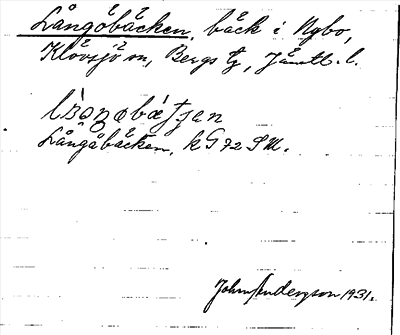 Långöbäcken, bäck i Nybo,
Klövsjö sn, Bergs tg, Jämtl. l.
Långåbäcken, kG 72 SM.
John Andersson 1931.